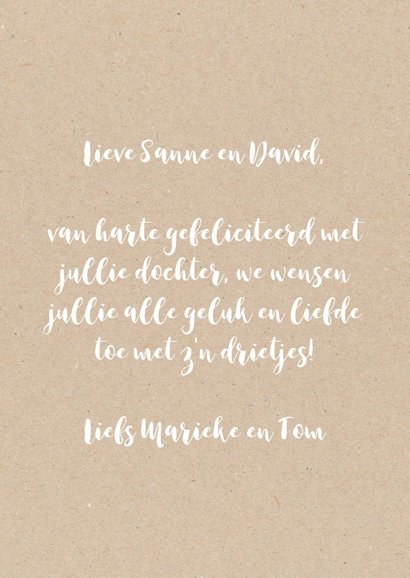 Lieve Sanne en David,
van harte gefeliciteerd met
jullie dochter, we wensen
jullie alle geluk en liefde
toe met z'n drietjes!
Liefs Marieke en Tom